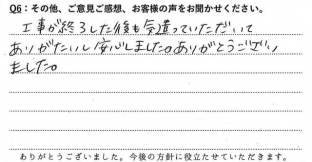 Q6：その他、ご意見ご感想、お客様の声をお聞かせください。
工事が終了した後も気遣っていただいて
ありがたいし安心しました。ありがとうござい
ました。
ありがとうございました。今後の方針に役立たせていただきます。